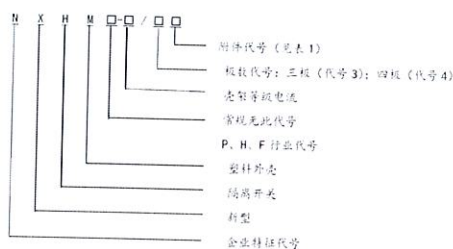 N X H M □-□/□□
附件代号（见表1）
极数代号：三极（代号3）；四极（代号4）
壳架等级电流
常规无此代号
P、H、F行业代号
塑料外壳
隔离开关
新型
企业特征代号